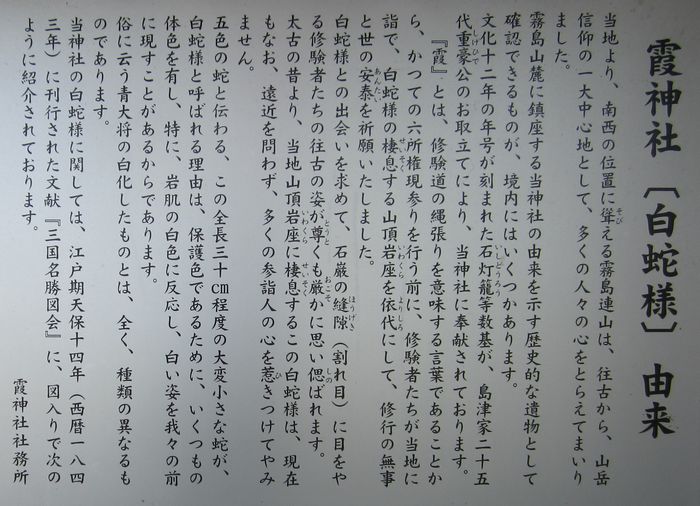 霞神社〔白蛇様〕由来
当地より、南西の位置に聳える霧島連山は、往古から、山岳
信仰の一大中心地として、多くの人々の心をとらえてまいり
ました。
霧島山麓に鎮座する当神社の由来を示す歴史的な遺物として
確認できるものが、境内にはいくつかあります。
文化十二年の年号が刻まれた石灯籠等数基が、島津家二十五
代重豪公のお取立てにより、当神社に奉献されております。
『霞』とは、修験道の縄張りを意味する言葉であることか
ら、かつての六所権現参りを行う前に、修験者たちが当地に
詣で、白蛇様の棲息する山頂岩座を依代にして、修行の無事
と世の安泰を祈願いたしました。
白蛇様との出会いを求めて、石厳の縫隙（割れ目）に目をや
る修験者たちの往古の姿が尊くも厳かに思い偲ばれます。
太古の昔より、当地山頂岩座に棲息するこの白蛇様は、現在
もなお、遠近を問わず、多くの参詣人の心を惹きつけてやみ
ません。
五色の蛇と伝わる、この全長三十cm程度の大変小さな蛇が、
白蛇様と呼ばれる理由は、保護色であるために、いくつもの
体色を有し、特に、岩肌の白色に反応し、白い姿を我々の前
に現すことがあるからであります。
俗に云う青大将の白化したものとは、全く、種類の異なるも
のであります。
当神社の白蛇様に関しては、江戸期天保十四年（西暦一八四
三年）に刊行された文献『三国名勝図会』に、図入りで次の
ように紹介されております。
霞神社社務所